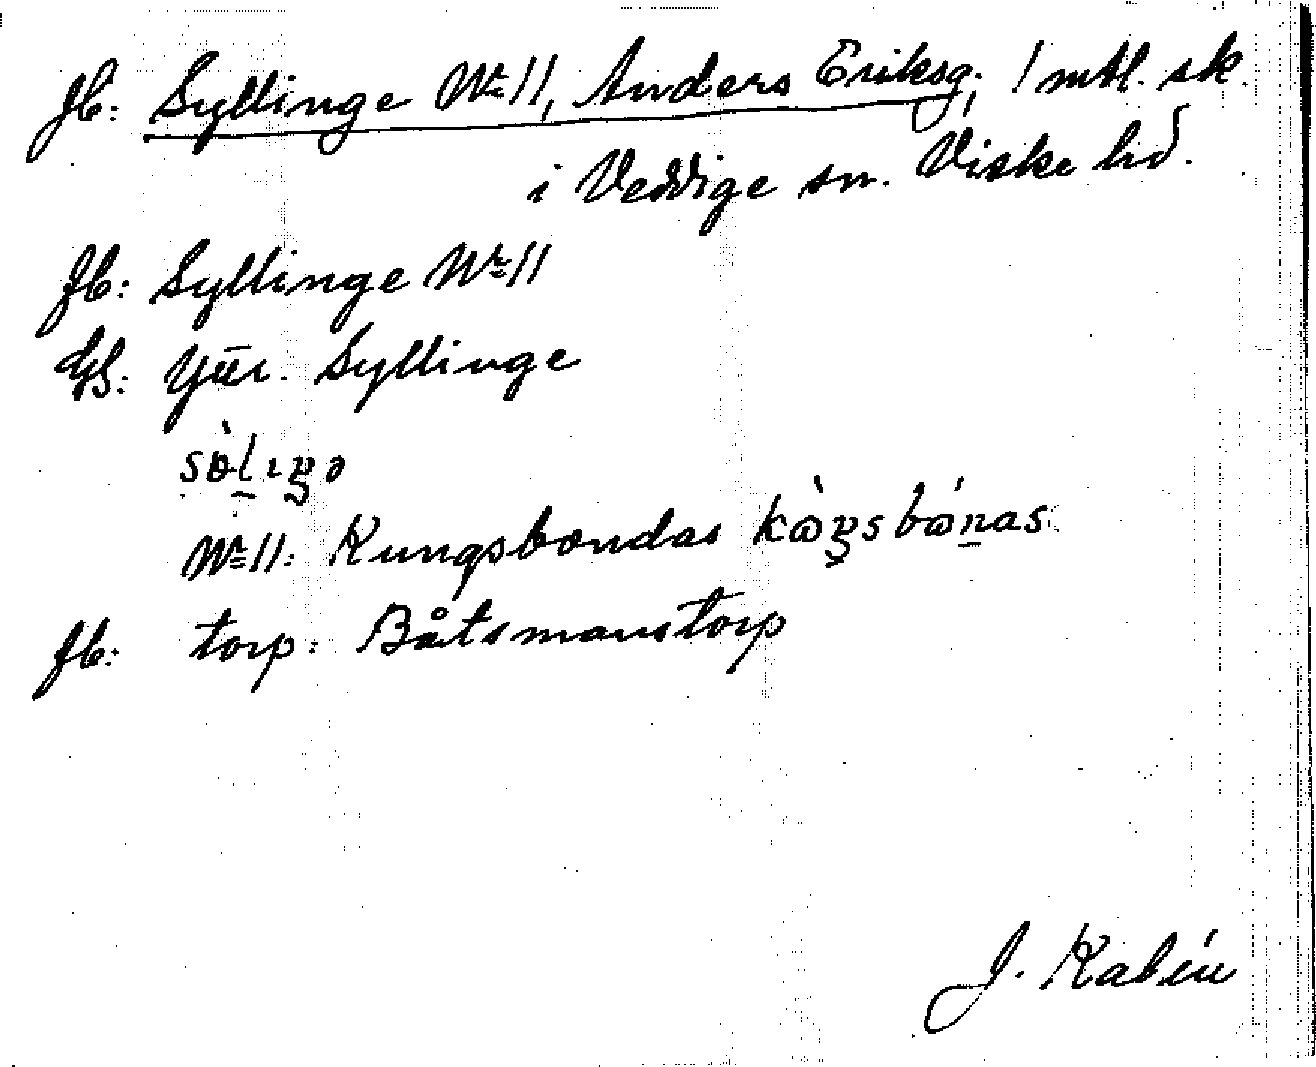 Jb: Syllinge Nr 11, Anders Eriksg. 1 mtl. sk.
i Veddige sn. Viske hd.
Jb: Syllinge Nr 11
Syllinge
Nr 11: Kungsbondas
Jb: torp: Båtsmanstorp
J. Kalén